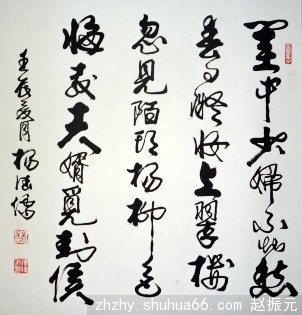 閨中少婦不知愁
春日凝妝上翠樓
忽見陌頭楊柳色
悔教夫婿覓封侯
壬辰夏月 楊
zhzhy.shuhua66.com 赵振元